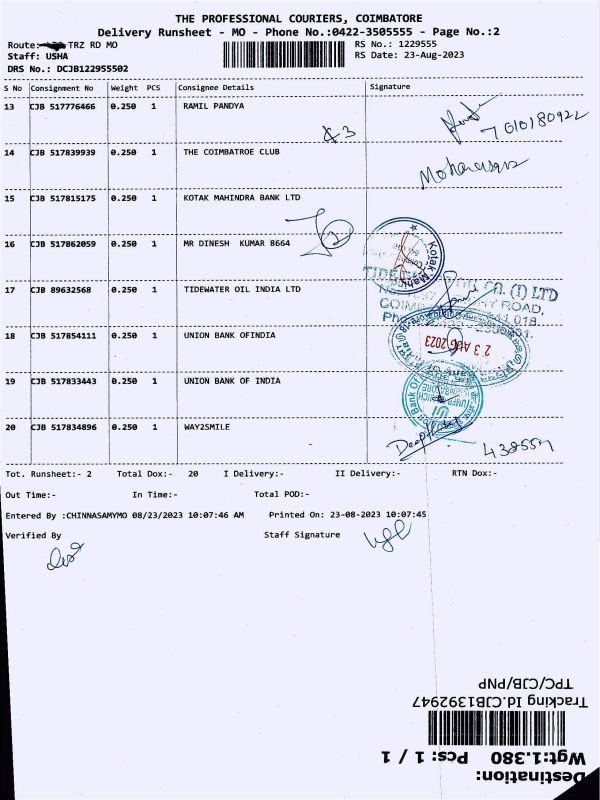 THE PROFESSIONAL COURIERS, COIMBATORE
Delivery Runsheet - MO - Phone No.:0422-3505555 - Page No.:2
Route: TRZ RD MO
RS No.: 1229555
Staff: USHA
RS Date: 23-Aug-2023
DRS No.: DCJB122955502
S No Consignment No Weight PCS Consignee Details Signature
13 CJB 517776466 0.250 1 RAMIL PANDYA
7010180922
14 CJB 517839939 0.250 1 THE COIMBATROE CLUB
15 CJB 517815175 0.250 1 KOTAK MAHINDRA BANK LTD
16 CJB 517862059 0.250 1 MR DINESH KUMAR B664
17 CJB 89632568 0.250 1 TIDEWATER OIL INDIA LTD
18 CJB 517854111 0.250 1 UNION BANK OFINDIA
23 AUG 2023
19 CJB 517833443 0.250 1 UNION BANK OF INDIA
20 CJB 517834896 0.250 1 WAY2SMILE
Tot. Runsheet:- 2 Total Dox:- 20 I Delivery:- II Delivery:- RTN Dox:-
Out Time:- In Time:- Total POD:-
Entered By :CHINNASAMYMO 08/23/2023 10:07:46 AM Printed On: 23-08-2023 10:07:45
Verified By Staff Signature
TPC/CJB/PNP
Tracking Id.CJB1392947
Wgt:1.380 Pcs: 1 / 1
Destination: